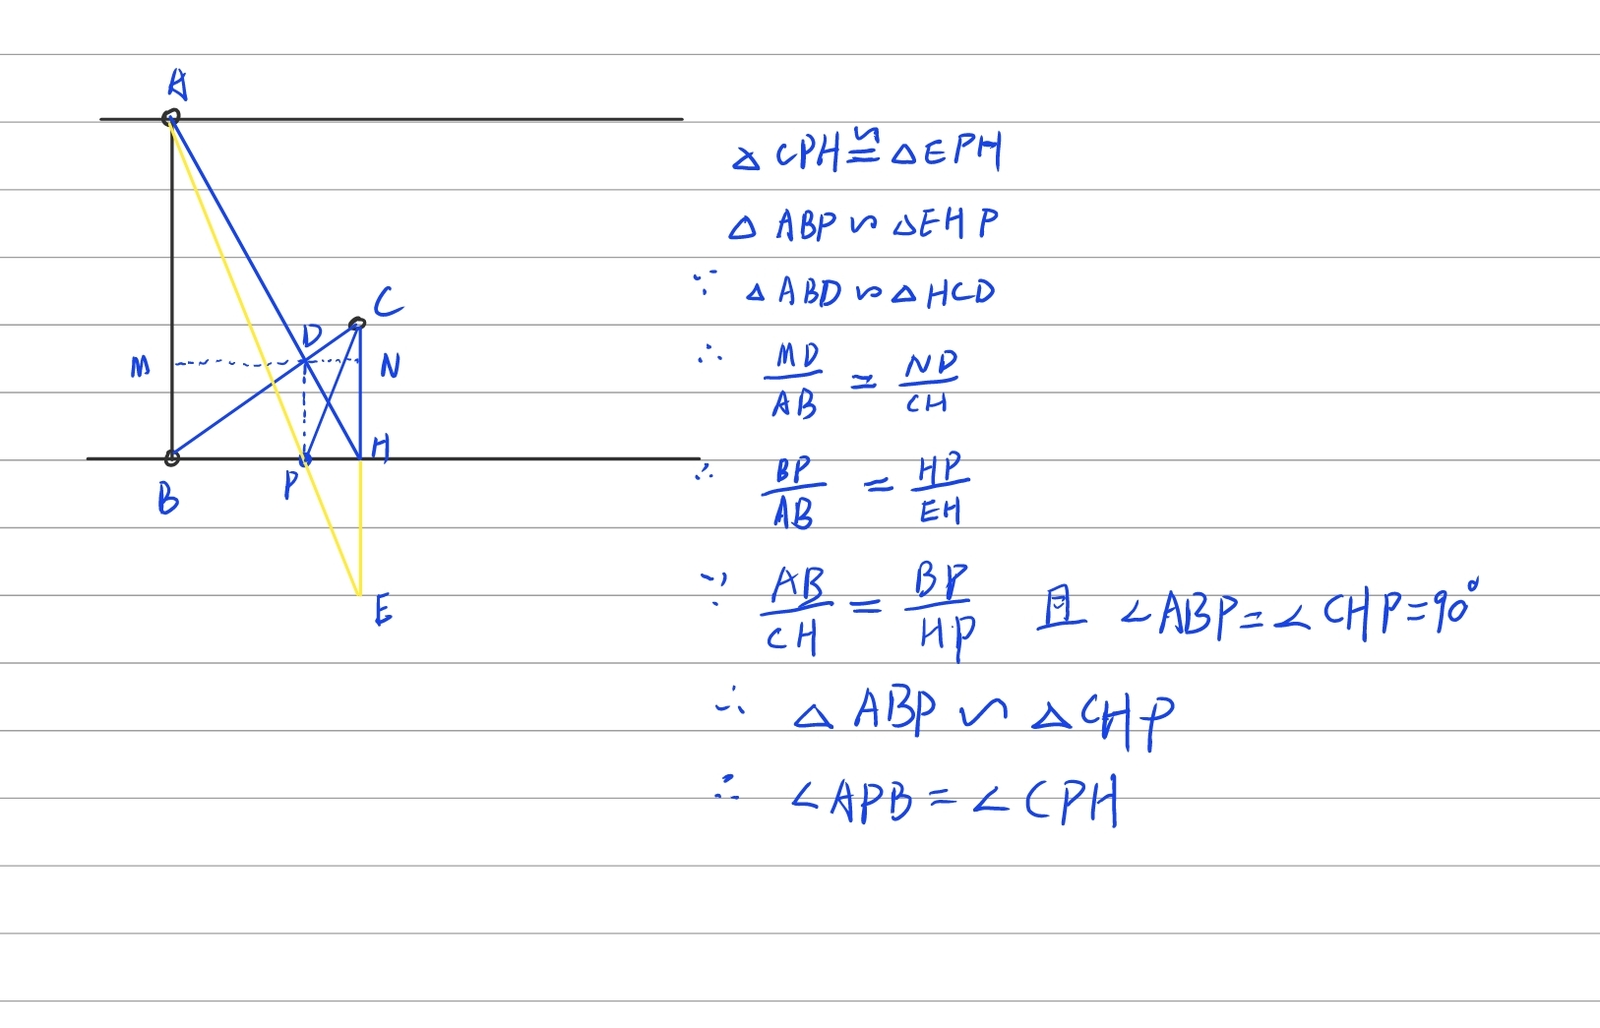 A
C
D
M
N
H
B
P
E
△CPH≌△EPH
△ABP∽△EHP
∵ △ABD∽△HCD
∴ MD/AB = ND/CH
∴ BP/AB = HP/EH
∵ AB/CH = BP/HP 且 ∠ABP=∠CHP=90°
∴ △ABP∽△CHP
∴ ∠APB=∠CPH